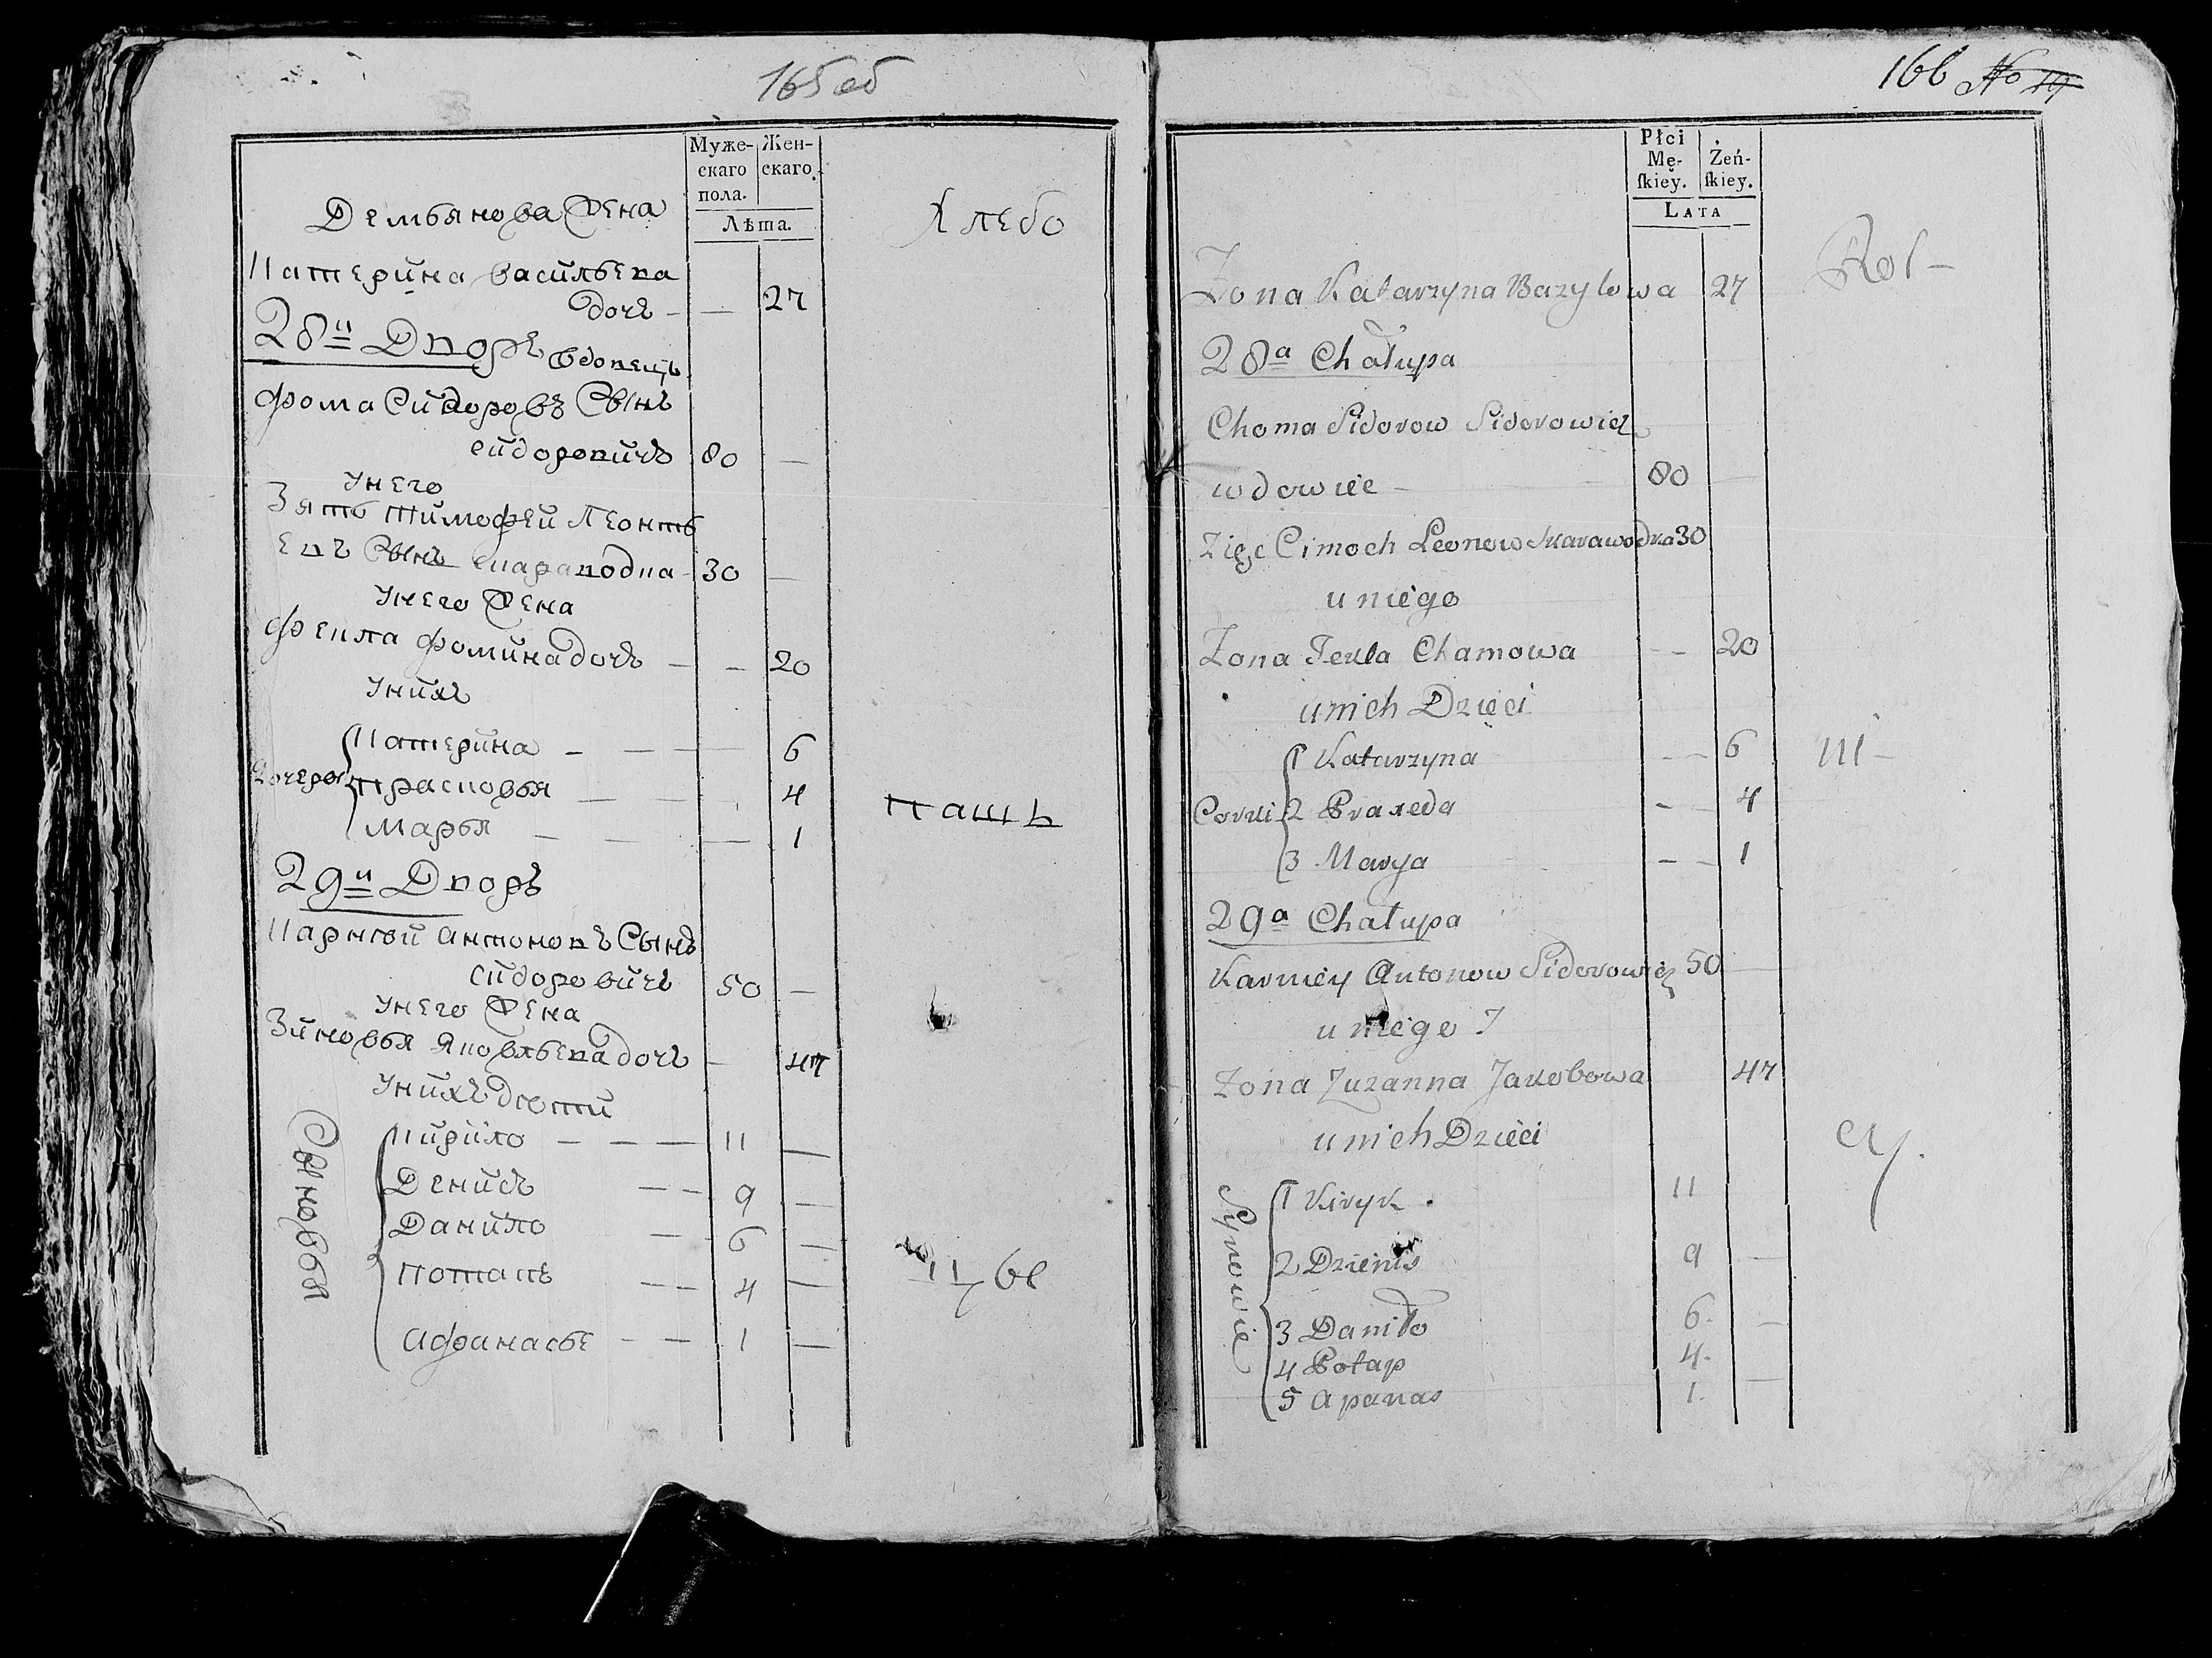 165 об
Муже-
скаго
пола.
Жен-
скаго.
Лѣта.
Демьянова Жена
Катерина Васильева
дочь - — 27
Хлебо
28й Дворъ
Вдовецъ
Фома Сидоровъ Сынъ
Сидоровичъ 80 —
У него
Зять Тимофей Леонть
евъ Сынъ Скараводка - 30 —
У него Жена
Фекла Фомина дочь — — 20
У нихъ
Дочери
Катерина — — — 6
Прасковья — — 4
Марья — — 1
пашь
29й Дворъ
Карней Антоновъ Сынъ
Сидоровичъ 50 —
У него Жена
Зиновья Яковлева дочь - 47
У нихъ дети
Сыновья
Кирило — — — 11 —
Денисъ — — 9 —
Данило — — 6 —
Потапъ — — 4 —
Афанасье — — 1 —
166 No 19
Płci
Mę-
skiey.
Żeń-
skiey.
LATA
Żona Katarzyna Bazylowa 27
Rol-
28a Chałupa
Choma Sidorow Sidorowicz
wdowiec — 80 —
Zięc Cimoch Leonow Skarawodka 30
u niego
Żona Tekla Chamowa — — 20
u nich Dzieci
Corki
1 Katarzyna — — 6
2 Praxeda — — 4
3 Marya — — 1
ni-
29a Chałupa
Karniey Antonow Sidorowicz 50 —
u niego
Żona Zuzanna Jakobowa 47
u nich Dzieci
cy.
Synowie
1 Kiryk . 11
2 Dzienis 9 —
3 Daniło 6. —
4 Potap 4. —
5 Apanas 1.